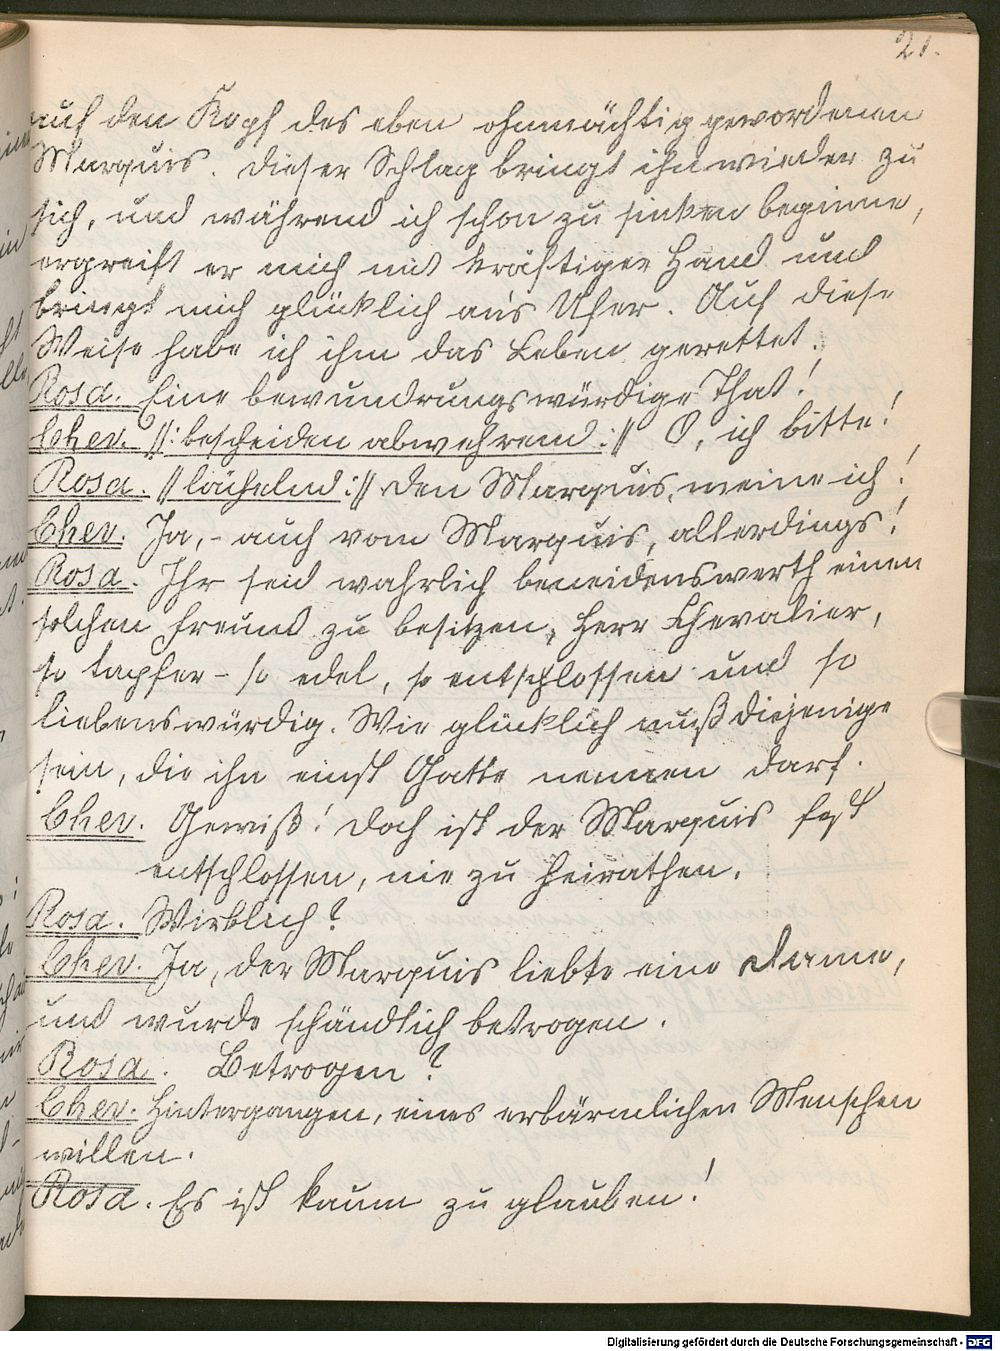 21.
auf den Kopf des eben ohnmächtig gewordenen
Marquis. Dieser Schlag bringt ihn wieder zu
sich, und während ich schon zu sinken beginne,
ergreift er mich mit kräftiger Hand und
bringt mich glücklich an's Ufer. Auf diese
Weise habe ich ihm das Leben gerettet.
Rosa. Eine bewundrungswürdige That!
Chev. //:bescheiden abwehrend:// O, ich bitte!
Rosa. //lächelnd:// Den Marquis, meine ich!
Chev. Ja, - auch vom Marquis, allerdings!
Rosa. Ihr seid wahrlich beneidenswerth einen
solchen Freund zu besitzen, Herr Chevalier,
so tapfer - so edel, so entschlossen und so
liebenswürdig. Wie glücklich muß diejenige
sein, die ihn einst Gatte nennen darf.
Chev. Gewiß! Doch ist der Marquis fest
entschlossen, nie zu heirathen.
Rosa. Wirklich?
Chev. Ja, der Marquis liebte eine Dame,
und wurde schändlich betrogen.
Rosa. Betrogen?
Chev. Hintergangen, eines erbärmlichen Menschen
willen.
Rosa. Es ist kaum zu glauben!
Digitalisierung gefördert durch die Deutsche Forschungsgemeinschaft - DFG